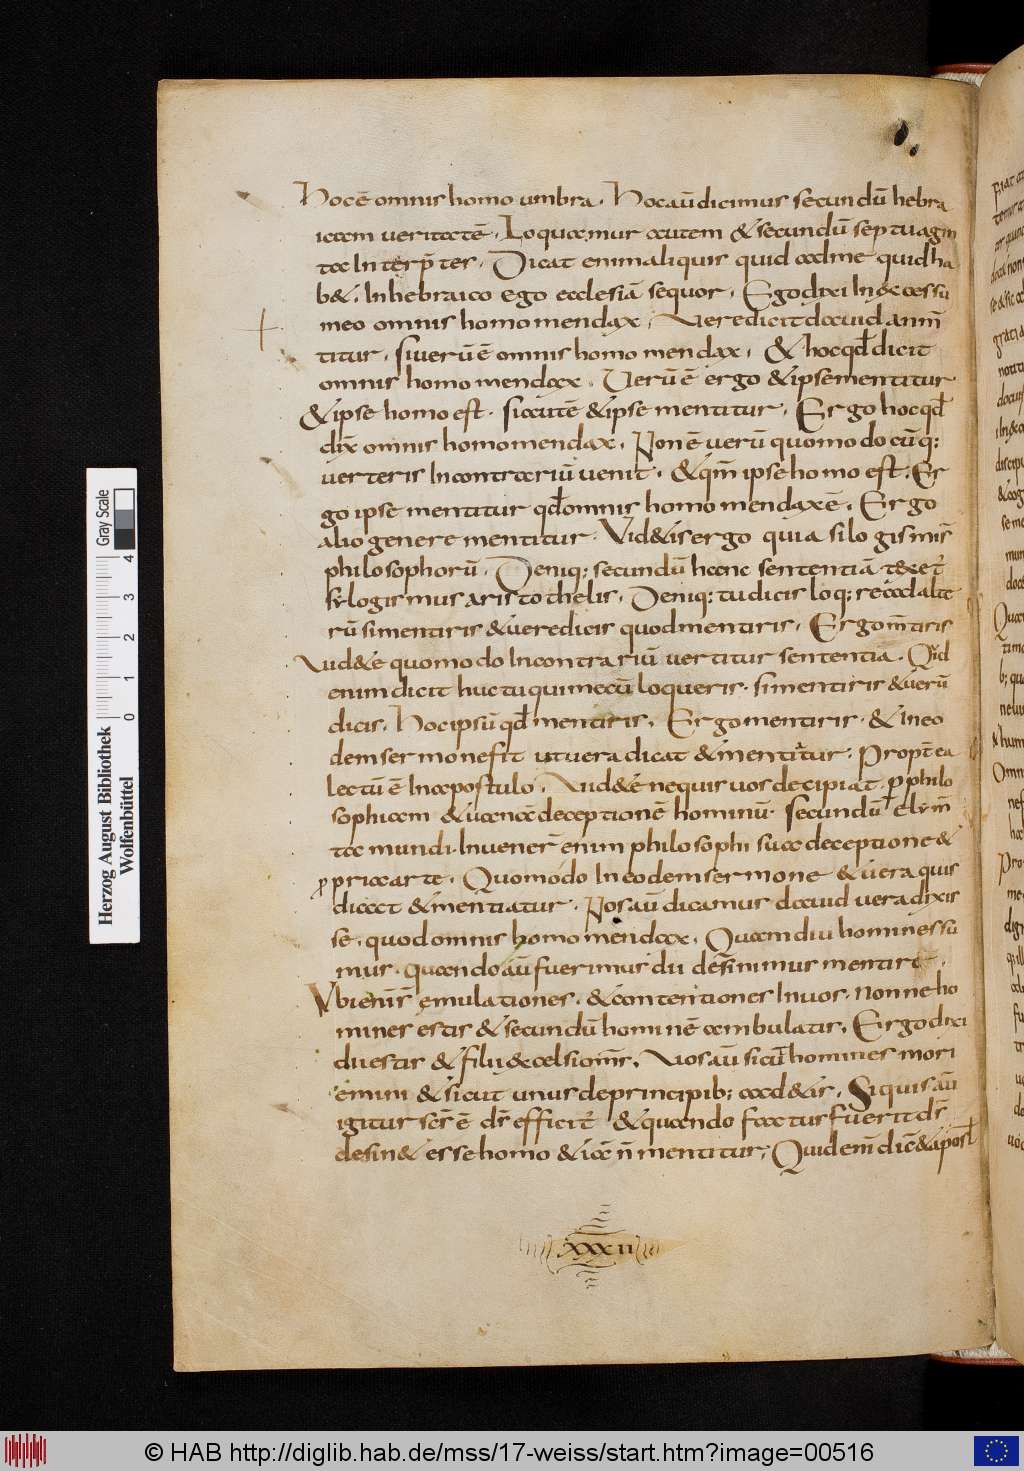 Hoc ē omnis homo umbra. Hoc aū dicimus secundū hebra
icam veritatē. Loquamur autem & secundū septuagin
ta Interp̄tes. Dicat enim aliquis quid ad me quid ha
b&. In hebraico ego ecclesiā sequor. Ego dixi In excessu
meo omnis homo mendax. Vere dicit dauid an m̄
titur. si verū ē omnis homo mendax. & hoc qđ dicit
omnis homo mendax. Verū ē ergo & ipse mentitur
& ipse homo est. sic autē & ipse mentitur. Ergo hoc qđ
dix̄ omnis homo mendax. Non ē verū quomodocūq;
verteris In contrariū venit. & qm̄ ipse homo est. Er
go ipse mentitur qđ omnis homo mendax ē. Ergo
alio genere mentitur. Vid&is ergo quia silogismis
philosophorū. Deniq; secundū hanc sententiā
sylogismus aristothelis. Deniq; tu dicis loq; re ad alte
rū si mentiris & vere dicis quod mentiris. Ergo m̄tiris
Vid&e quomodo In contrariū vertitur sententia. Qid
enim dicit huc tu qui mecū loqueris. si mentiris & verū
dicis. Hoc ipsū qđ mentiris. Ergo mentiris. & In eo
dem sermone fit ut vera dicat & mentitur. Propt̄ ea
lectū ē In apostulo. Vid&e ne quis vos decipiat p philo
sophiam & uanā deceptionē hominū. secundū elym̄
ta mundi. Invener̄ enim philosophi sua deceptione &
propria arte. Quomodo In eodem sermone & vera quis
dicat & mentiatur. Nos aū dicamus dauid vera dixis
se. quod omnis homo mendax. Quamdiu homines su
mus. quando aū fuerimus dii desinimus mentire.
Vbi enis̄ emulationes. & contentiones In vos. nonne ho
mines estis & secundū hominē ambulatis. Ergo dixi
dii estis & filii excelsi oms̄. Vos aū sicut homines mori
emini & sicut unus de principib; cad&is. Si quis aū
igitur sc̄s ē d̄s efficit̄ & quando factus fuerit d̄s
desin& esse homo & iā n̄ mentitur; Quid enī dic̄ & apost̄
xxxii
Herzog August Bibliothek
Wolfenbüttel
0 1 2 3 4
Gray Scale
© HAB http://diglib.hab.de/mss/17-weiss/start.htm?image=00516